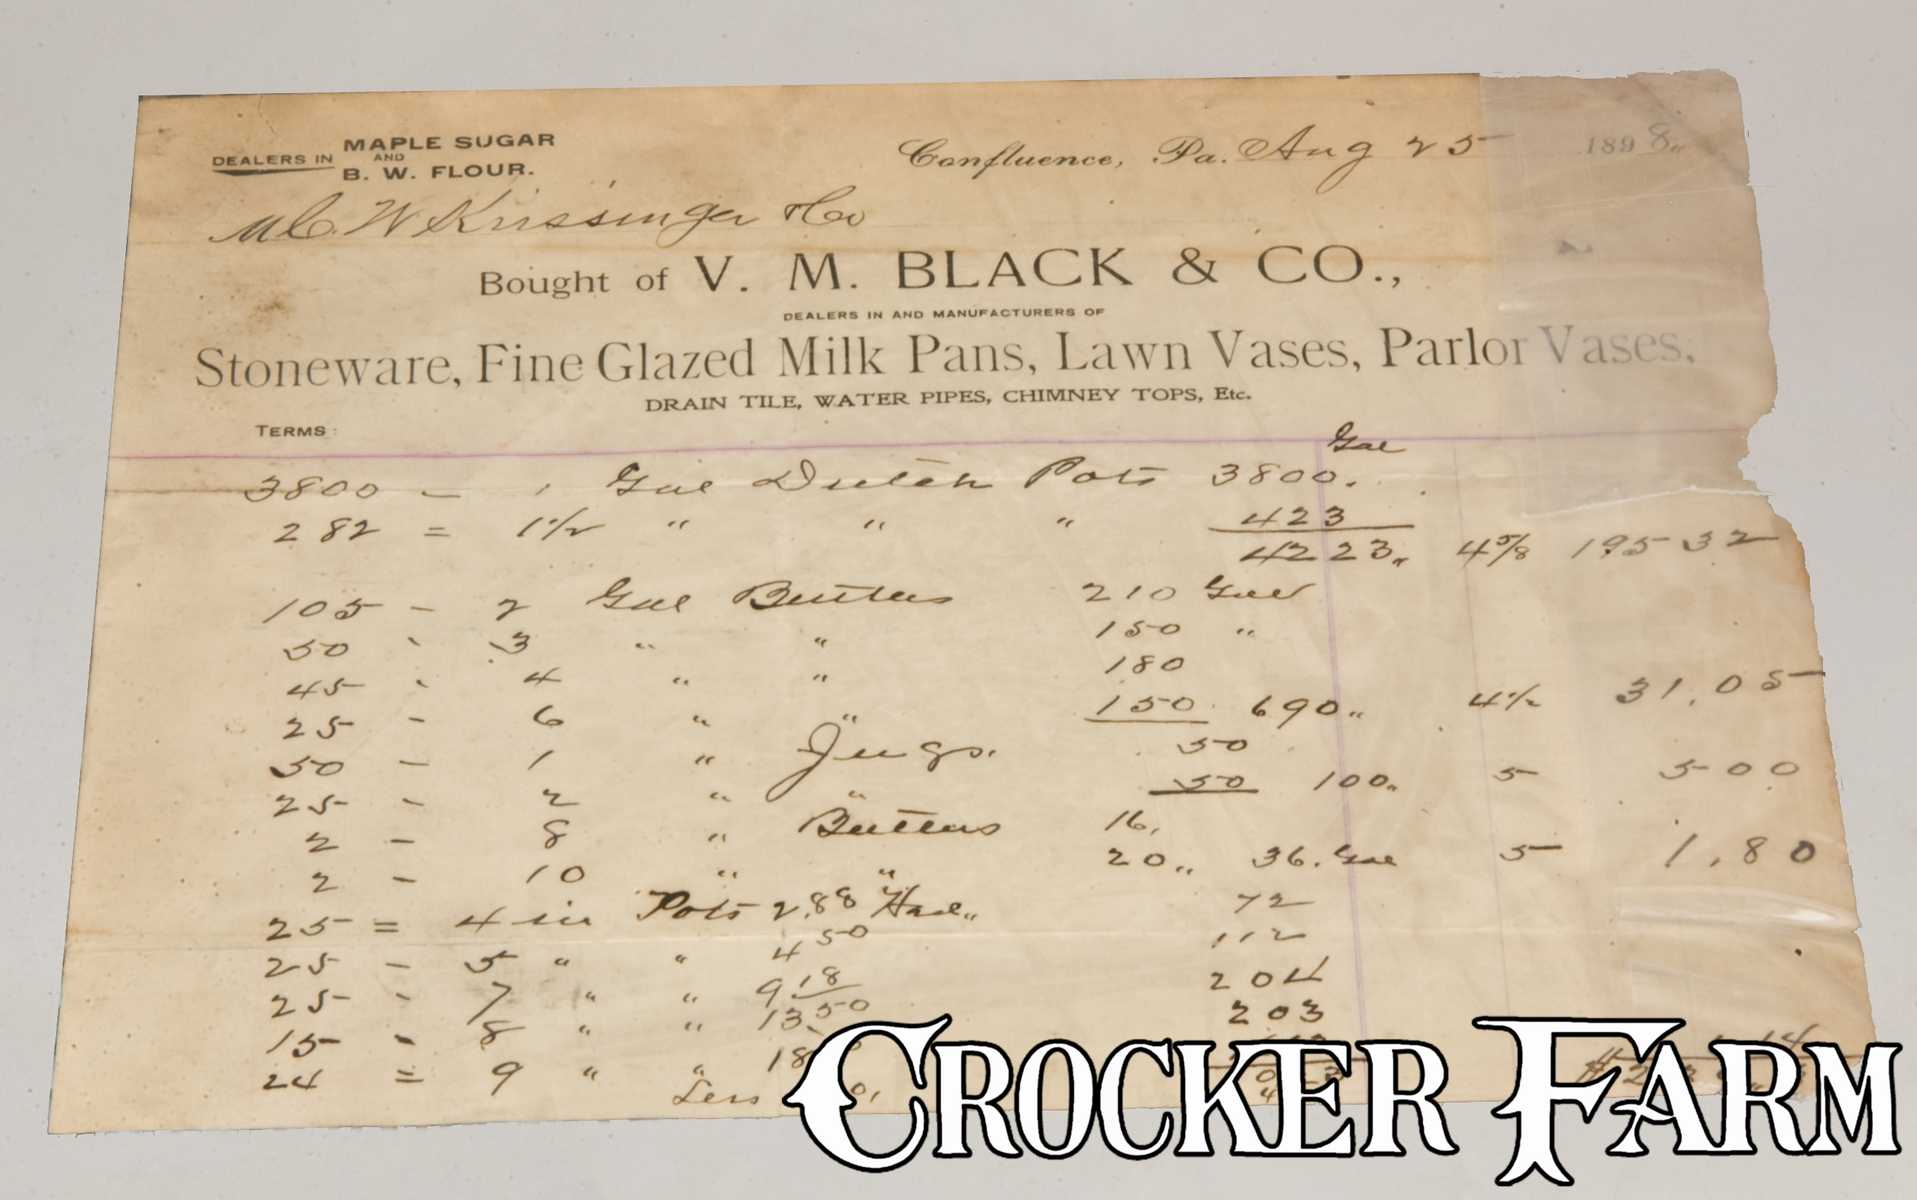 DEALERS IN MAPLE SUGAR
AND
B. W. FLOUR.
Confluence, Pa. Aug 25 1898„
M C. W Krissinger & Co
Bought of V. M. BLACK & CO.,
DEALERS IN AND MANUFACTURERS OF
Stoneware, Fine Glazed Milk Pans, Lawn Vases, Parlor Vases,
DRAIN TILE, WATER PIPES, CHIMNEY TOPS, Etc.
TERMS:
Gal
3800 - 1 Gal Dutch Pots 3800.
282 = 1 1/2 " " " 423
4223„ 4 5/8 195 32
105 - 2 Gal Butters 210 Gal
50 - 3 " " 150 "
45 - 4 " " 180
25 - 6 " " 150 690„ 4 1/2 31.05
50 - 1 " Jugs. 50
25 - 2 " " 50 100„ 5 500
2 - 8 " Butters 16,
2 - 10 " " 20„ 36. Gal 5 1.80
25 = 4 in Pots 2.88 72
25 - 5 " " 4 50 112
25 - 7 " " 9 18 204
15 - 8 " " 13 50 203
24 = 9 " " 18
Less
CROCKER FARM